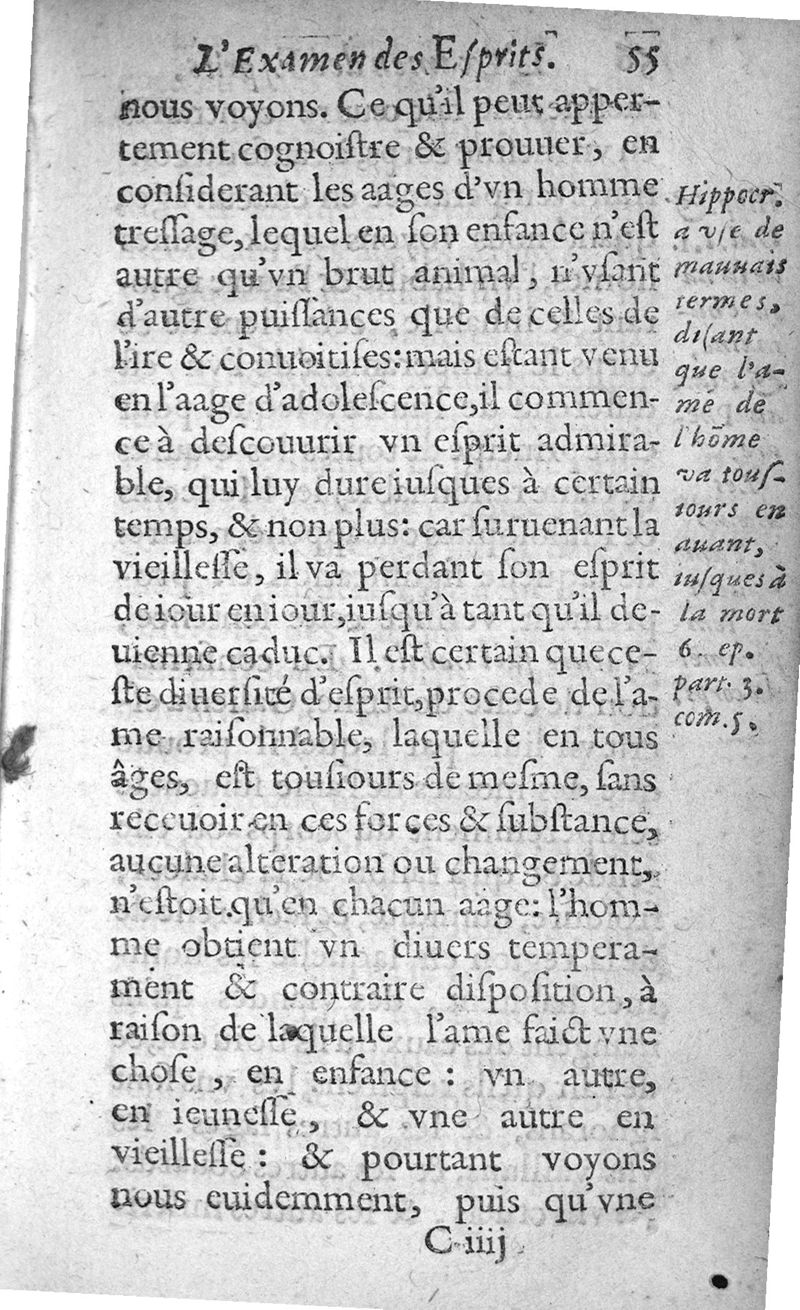 L'Examen des Eſprits. 55
nous voyons. Ce qu'il peut apper-
tement cognoiſtre & prouuer, en
conſiderant les aages d'vn homme
treſſage, lequel en ſon enfance n'eſt
autre qu'vn brut animal, n'vſant
d'autre puiſſances que de celles de
l'ire & conuoitiſes: mais eſtant venu
en l'aage d'adoleſcence, il commen-
ce à deſcouurir vn eſprit admira-
ble, qui luy dure iuſques à certain
temps, & non plus: car ſuruenant la
vieilleſſe, il va perdant ſon eſprit
de iour en iour, iuſqu'à tant qu'il de-
uienne caduc. Il eſt certain que ce-
ſte diuerſité d'eſprit, procede de l'a-
me raiſonnable, laquelle en tous
âges, eſt touſiours de meſme, ſans
receuoir en ces forces & ſubſtance,
aucune alteration ou changement,
n'eſtoit qu'en chacun aage: l'hom-
me obtient vn diuers tempera-
ment & contraire diſpoſition, à
raiſon de laquelle l'ame faict vne
choſe, en enfance: vn autre,
en ieuneſſe, & vne autre en
vieilleſſe: & pourtant voyons
nous euidemment, puis qu'vne
C iiij
Hippocr.
a vſe de
mauuais
termes,
diſant
que l'a-
me de
l'hõme
va touſ-
iours en
auant,
iuſques à
la mort
6. ep.
part. 3.
com. 5.